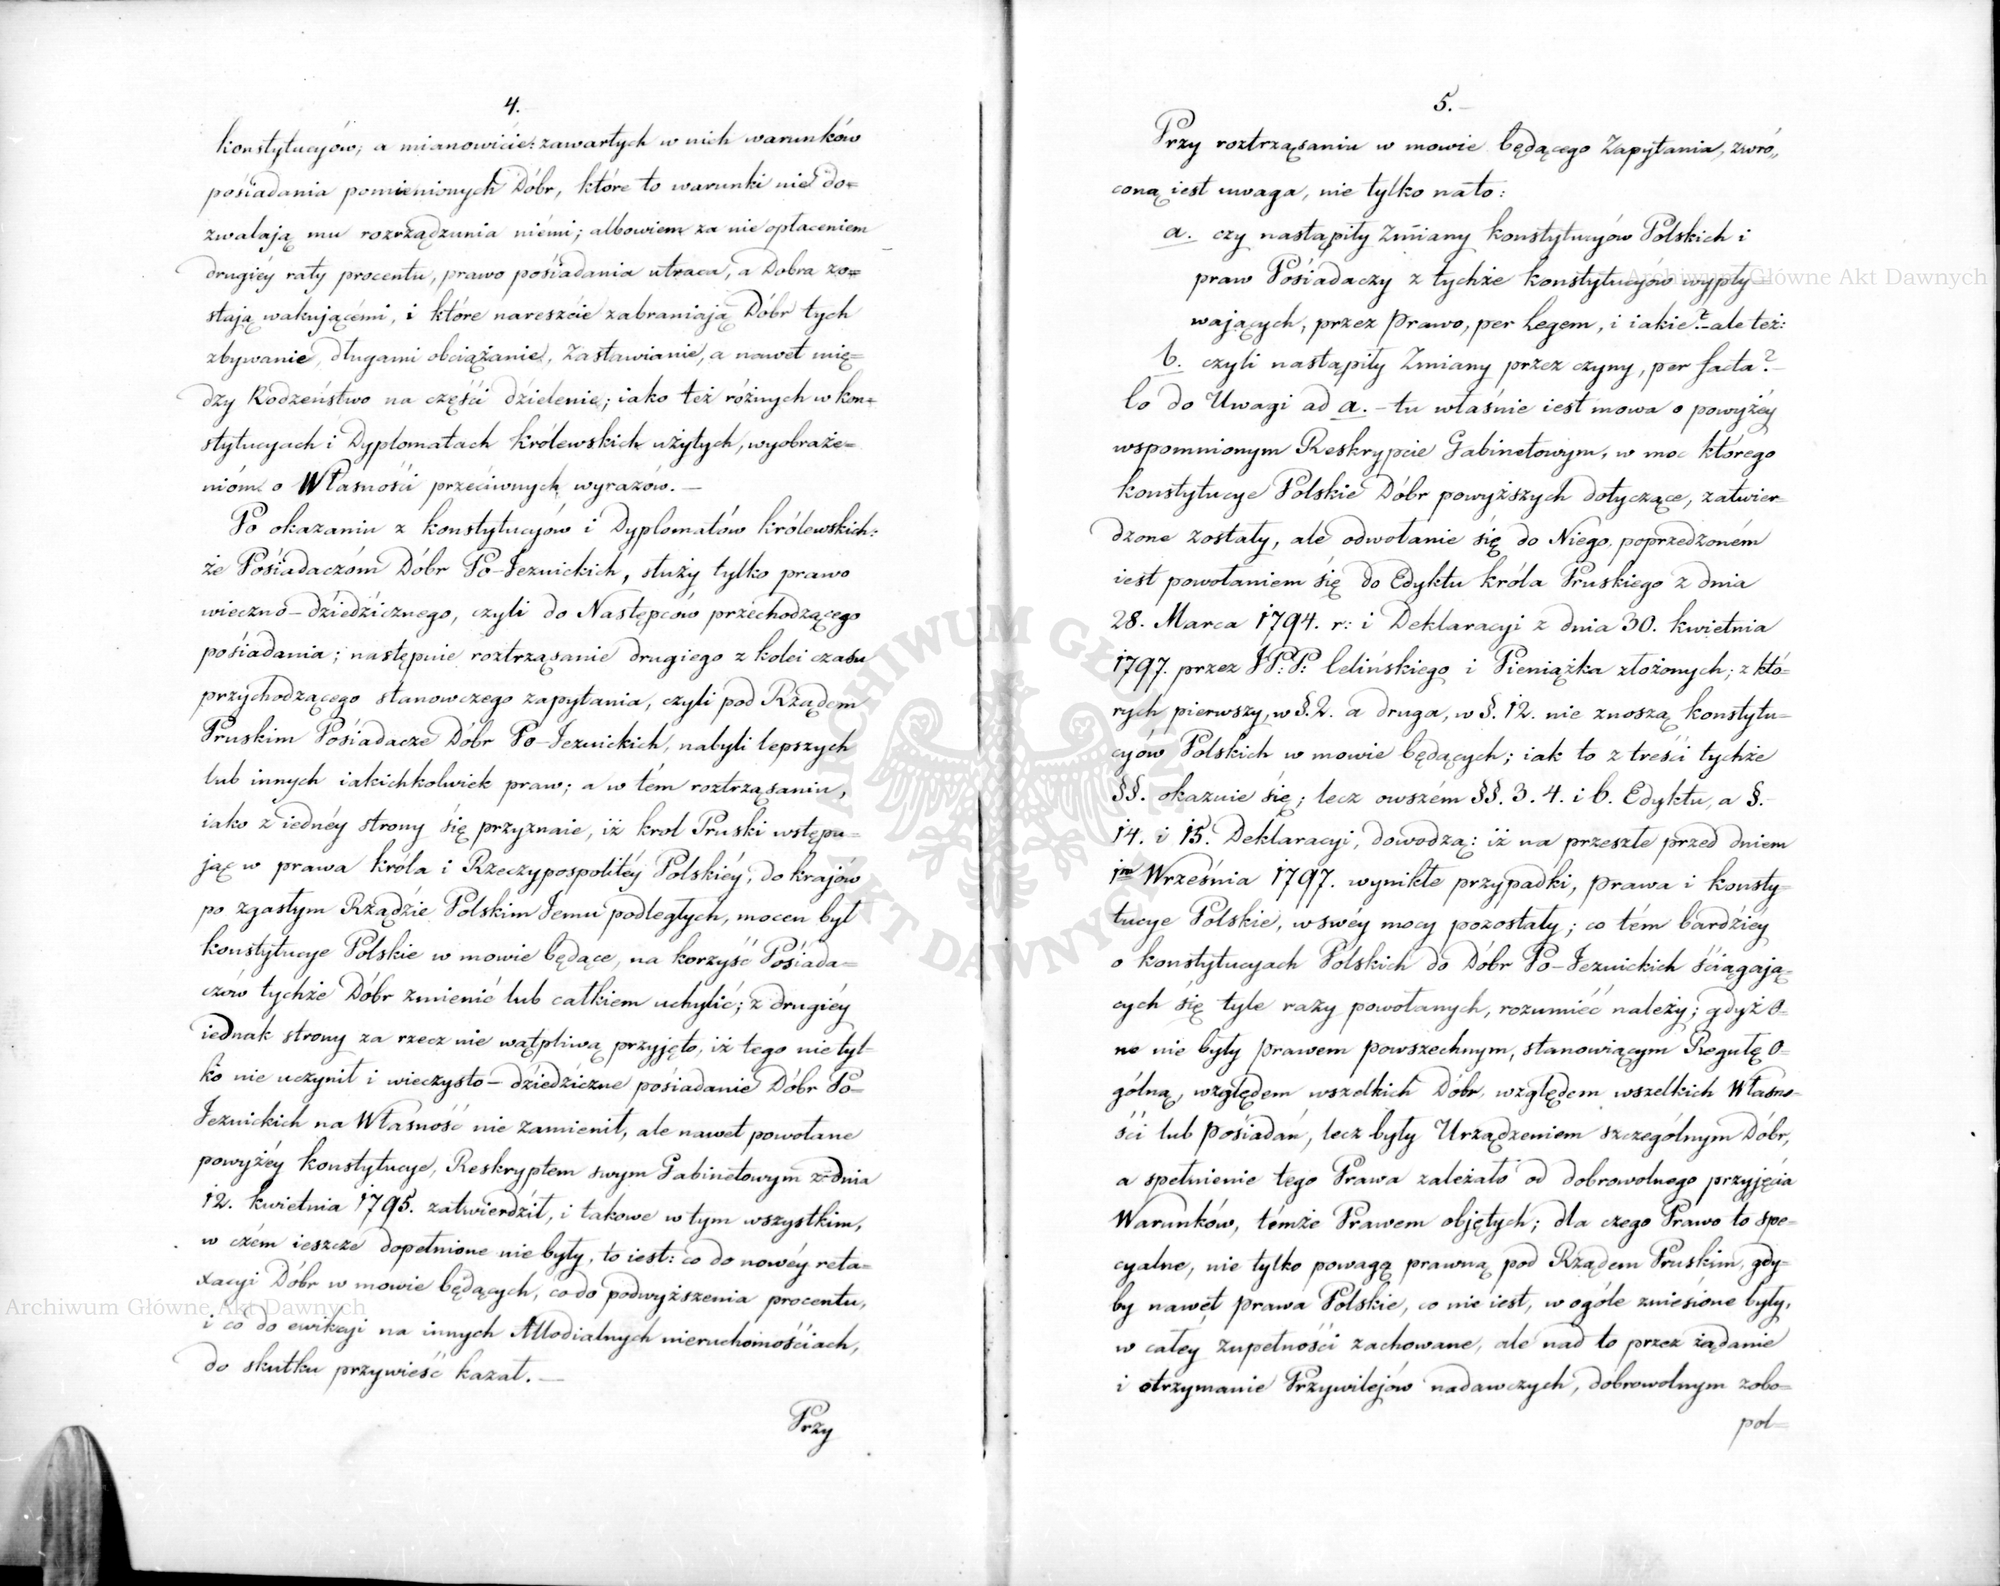 4.
konstytucyów; a mianowicie: zawartych w nich warunków
posiadania pomienionych Dóbr, które to warunki nie do=
zwalają mu rozrządzania niémi; albowiem za nie opłaceniem
drugiéy raty procentu, prawo posiadania utraca, a Dobra zo=
stają wakującémi, i które nareszcie zabraniają Dóbr tych
zbywanie, długami obciążanie, Zastawianie, a nawet mię=
dzy Rodzeństwo na części dzielenie; iako też różnych w kon=
stytucyach i Dyplomatach królewskich użytych, wyobraże=
nióm o Własności przeciwnych wyrazów. —
Po okazaniu z konstytucyów i Dyplomatów królewskich:
że Posiadaczóm Dóbr Po-Jezuickich, służy tylko prawo
wieczno-dziedzicznego, czyli do Następców przechodzącego
posiadania; następnie roztrząsanie drugiego z kolei czasu
przychodzącego stanowczego zapytania, czyli pod Rządem
Pruskim Posiadacze Dóbr Po-Jezuickich, nabyli lepszych
lub innych iakichkolwiek praw; a w tém roztrząsaniu,
iako z iednéy strony się przyznaie, iż krol Pruski wstępu=
jąc w prawa króla i Rzeczypospolitéy Polskiéy, do krajów
po zgasłym Rządzie Polskim Jemu podległych, mocen był
konstytucye Polskie w mowie będące, na korzyść Posiada=
czów tychże Dóbr zmienić lub całkiem uchylić; z drugiéy
iednak strony za rzecz nie wątpliwą przyjęto, iż tego nie tyl=
ko nie uczynił i wieczysto-dziedziczne posiadanie Dóbr Po=
Jezuickich na Własność nie zamienił, ale nawet powołane
powyżéy konstytucye, Reskryptem swym Gabinetowym z dnia
12. kwietnia 1795. zatwierdził, i takowe w tym wszystkim,
w czém ieszcze dopełnione nie były, to iest: co do nowéy reta=
xacyi Dóbr w mowie będących, co do podwyższenia procentu,
i co do ewikcyi na innych Allodialnych nieruchomościach,
do skutku przywieść kazał. —
Przy
5. —
Przy roztrząsaniu w mowie będącego Zapytania, zwró„
coną iest uwaga, nie tylko na to:
a. czy nastąpiły Zmiany konstytucyów Polskich i
praw Posiadaczy z tychże konstytucyów wypły=
wających, przez Prawo, per Legem, i iakie? — ale też:
b. czyli nastąpiły Zmiany przez czyny, per facta? —
Co do Uwagi ad a. — tu właśnie iest mowa o powyżéy
wspomnionym Reskrypcie Gabinetowym, w moc którego
konstytucye Polskie Dóbr powyższych dotyczące, zatwier=
dzone zostały, ale odwołanie się do Niego poprzedzoném
iest powołaniem się do Edyktu króla Pruskiego z dnia
28. Marca 1794. r: i Deklaracyi z dnia 30. kwietnia
1797. przez JP:P: Celińskiego i Pieniążka złożonych; z któ=
rych pierwszy, w §. 2. a druga, w §. 12. nie znoszą konstytu=
cyów Polskich w mowie będących; iak to z treści tychże
§§. okazuie się; lecz owszém §§. 3. 4. i 6. Edyktu, a §. —
14. i 15. Deklaracyi, dowodzą: iż na przeszłe przed dniem
1m Września 1797. wynikłe przypadki, prawa i konsty=
tucye Polskie, w swéy mocy pozostały; co tém bardziéy
o konstytucyach Polskich do Dóbr Po-Jezuickich ściągają=
cych się tyle razy powołanych, rozumieć należy; gdyż o=
ne nie były prawem powszechnym, stanowiącym Regułę o=
gólną, względem wszelkich Dóbr, względem wszelkich Własno=
ści lub posiadań, lecz były Urządzeniem szczególnym Dóbr,
a spełnienie tego Prawa zależało od dobrowolnego przyjęcia
Warunków, témże Prawem objętych; dla czego Prawo to spe=
cyalne, nie tylko powagą prawną pod Rządem Pruskim, gdy=
by nawet prawa Polskie, co nie iest, w ogóle zniesione były,
w całéy zupełności zachowane, ale nad to przez żądanie
i otrzymanie Przywilejów nadawczych, dobrowolnym zobo=
pol=
Archiwum Główne Akt Dawnych
Archiwum Główne Akt Dawnych
ARCHIWUM GŁÓWNE AKT DAWNYCH